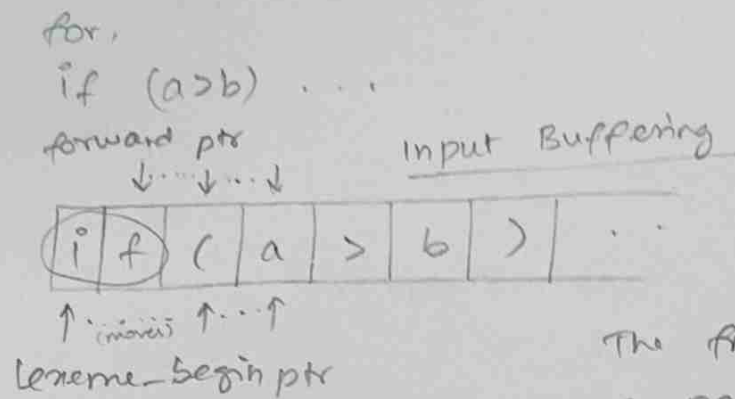 for,
if (a>b) ...
forward ptr
Input Buffering
i f ( a > b ) ..
(moves)
lexeme_begin ptr
The